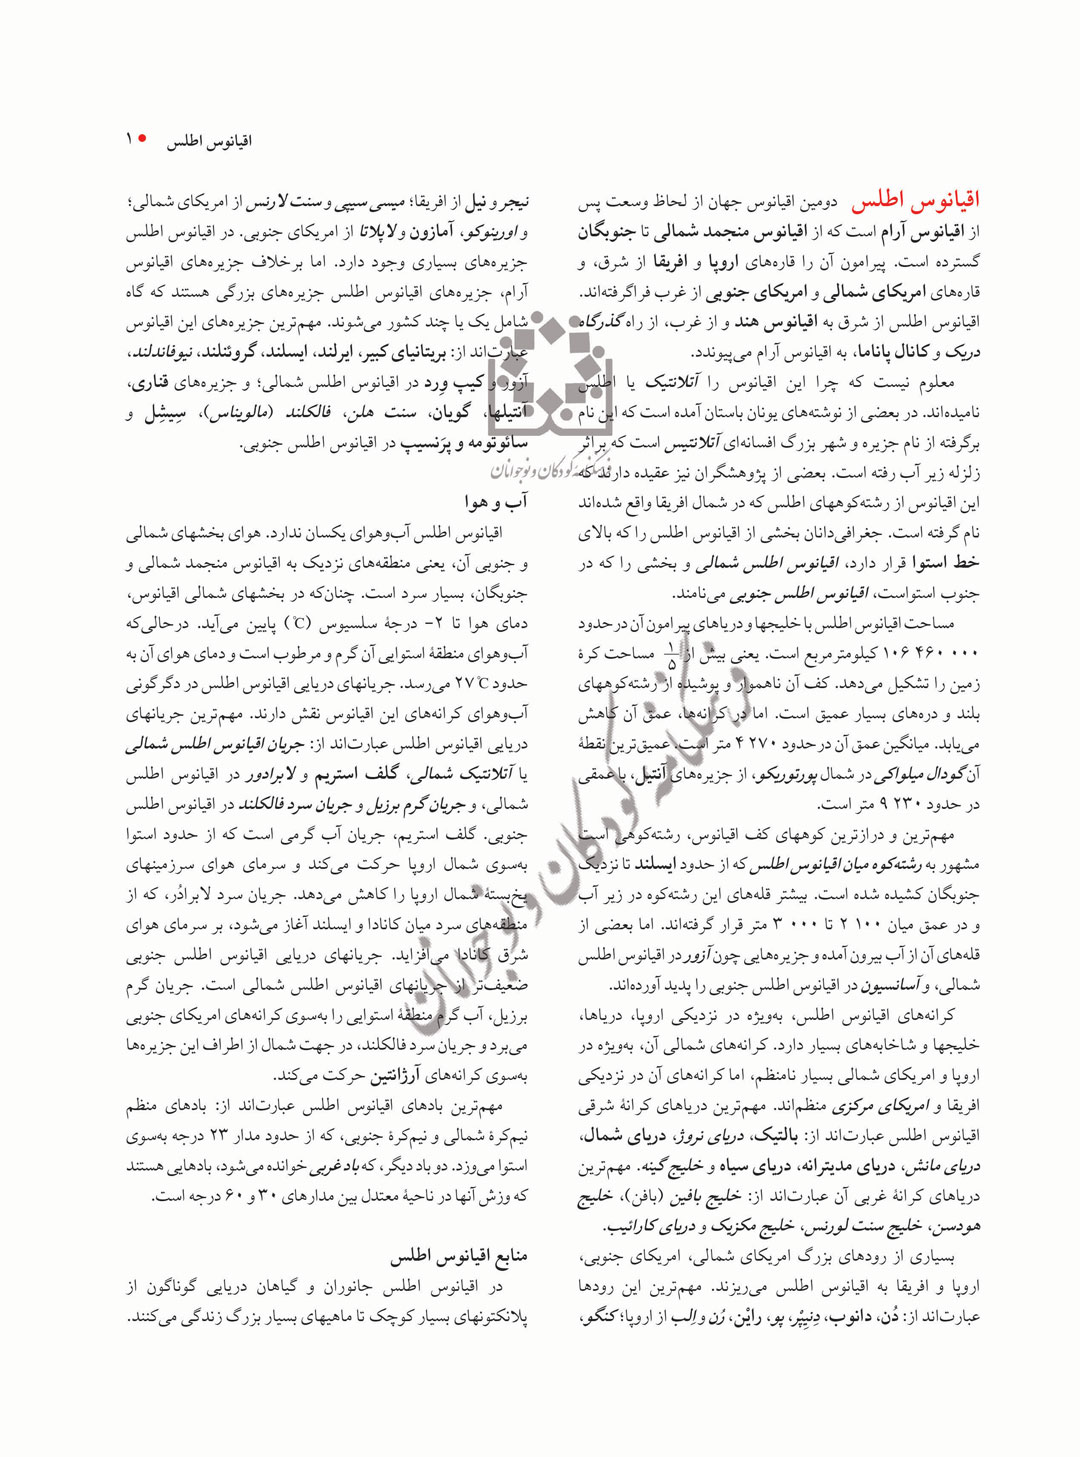 اقیانوس اطلس • ۱
اقیانوس اطلس دومین اقیانوس جهان از لحاظ وسعت پس
از اقیانوس آرام است که از اقیانوس منجمد شمالی تا جنوبگان
گسترده است. پیرامون آن را قاره‌های اروپا و افریقا از شرق، و
قاره‌های امریکای شمالی و امریکای جنوبی از غرب فراگرفته‌اند.
اقیانوس اطلس از شرق به اقیانوس هند و از غرب، از راه گذرگاه
دریک و کانال پاناما، به اقیانوس آرام می‌پیوندد.
معلوم نیست که چرا این اقیانوس را آتلانتیک یا اطلس
نامیده‌اند. در بعضی از نوشته‌های یونان باستان آمده است که این نام
برگرفته از نام جزیره و شهر بزرگ افسانه‌ای آتلانتیس است که براثر
زلزله زیر آب رفته است. بعضی از پژوهشگران نیز عقیده دارند که
این اقیانوس از رشته‌کوههای اطلس که در شمال افریقا واقع شده‌اند
نام گرفته است. جغرافی‌دانان بخشی از اقیانوس اطلس را که بالای
خط استوا قرار دارد، اقیانوس اطلس شمالی و بخشی را که در
جنوب استواست، اقیانوس اطلس جنوبی می‌نامند.
مساحت اقیانوس اطلس با خلیجها و دریاهای پیرامون آن درحدود
۱۰۶ ۴۶۰ ۰۰۰ کیلومترمربع است. یعنی بیش از ۱/۵ مساحت کرهٔ
زمین را تشکیل می‌دهد. کف آن ناهموار و پوشیده از رشته‌کوههای
بلند و دره‌های بسیار عمیق است. اما در کرانه‌ها، عمق آن کاهش
می‌یابد. میانگین عمق آن درحدود ۴ ۲۷۰ متر است. عمیق‌ترین نقطهٔ
آن گودال میلواکی در شمال پورتوریکو، از جزیره‌های آنتیل، با عمقی
در حدود ۹ ۲۳۰ متر است.
مهم‌ترین و درازترین کوههای کف اقیانوس، رشته‌کوهی است
مشهور به رشته‌کوه میان اقیانوس اطلس که از حدود ایسلند تا نزدیک
جنوبگان کشیده شده است. بیشتر قله‌های این رشته‌کوه در زیر آب
و در عمق میان ۲ ۱۰۰ تا ۳ ۰۰۰ متر قرار گرفته‌اند. اما بعضی از
قله‌های آن از آب بیرون آمده و جزیره‌هایی چون آزور در اقیانوس اطلس
شمالی، و آسانسیون در اقیانوس اطلس جنوبی را پدید آورده‌اند.
کرانه‌های اقیانوس اطلس، به‌ویژه در نزدیکی اروپا، دریاها،
خلیجها و شاخابه‌های بسیار دارد. کرانه‌های شمالی آن، به‌ویژه در
اروپا و امریکای شمالی بسیار نامنظم، اما کرانه‌های آن در نزدیکی
افریقا و امریکای مرکزی منظم‌اند. مهم‌ترین دریاهای کرانهٔ شرقی
اقیانوس اطلس عبارت‌اند از: بالتیک، دریای نروژ، دریای شمال،
دریای مانش، دریای مدیترانه، دریای سیاه و خلیج گینه. مهم‌ترین
دریاهای کرانهٔ غربی آن عبارت‌اند از: خلیج بافین (بافن)، خلیج
هودسن، خلیج سنت لورنس، خلیج مکزیک و دریای کارائیب.
بسیاری از رودهای بزرگ امریکای شمالی، امریکای جنوبی،
اروپا و افریقا به اقیانوس اطلس می‌ریزند. مهم‌ترین این رودها
عبارت‌اند از: دُن، دانوب، دِنیِپْر، پو، رایْن، رُن و اِلب از اروپا؛ کنگو،
نیجر و نیل از افریقا؛ میسی سیپی و سنت لارنس از امریکای شمالی؛
و اورینوکو، آمازون و لاپلاتا از امریکای جنوبی. در اقیانوس اطلس
جزیره‌های بسیاری وجود دارد. اما برخلاف جزیره‌های اقیانوس
آرام، جزیره‌های اقیانوس اطلس جزیره‌های بزرگی هستند که گاه
شامل یک یا چند کشور می‌شوند. مهم‌ترین جزیره‌های این اقیانوس
عبارت‌اند از: بریتانیای کبیر، ایرلند، ایسلند، گروئنلند، نیوفاندلند،
آزور و کیپ وِرد در اقیانوس اطلس شمالی؛ و جزیره‌های قناری،
آنتیلها، گویان، سنت هلن، فالکلند (مالویناس)، سِیشِل و
سائوتومه و پرَنسیپ در اقیانوس اطلس جنوبی.
فرهنگنامهٔ کودکان و نوجوانان
آب و هوا
اقیانوس اطلس آب‌وهوای یکسان ندارد. هوای بخشهای شمالی
و جنوبی آن، یعنی منطقه‌های نزدیک به اقیانوس منجمد شمالی و
جنوبگان، بسیار سرد است. چنان‌که در بخشهای شمالی اقیانوس،
دمای هوا تا ۲- درجهٔ سلسیوس (℃) پایین می‌آید. درحالی‌که
آب‌وهوای منطقهٔ استوایی آن گرم و مرطوب است و دمای هوای آن به
حدود ۲۷℃ می‌رسد. جریانهای دریایی اقیانوس اطلس در دگرگونی
آب‌وهوای کرانه‌های این اقیانوس نقش دارند. مهم‌ترین جریانهای
دریایی اقیانوس اطلس عبارت‌اند از: جریان اقیانوس اطلس شمالی
یا آتلانتیک شمالی، گلف استریم و لابرادور در اقیانوس اطلس
شمالی، و جریان گرم برزیل و جریان سرد فالکلند در اقیانوس اطلس
جنوبی. گلف استریم، جریان آب گرمی است که از حدود استوا
به‌سوی شمال اروپا حرکت می‌کند و سرمای هوای سرزمینهای
یخ‌بستهٔ شمال اروپا را کاهش می‌دهد. جریان سرد لابرادُر، که از
منطقه‌های سرد میان کانادا و ایسلند آغاز می‌شود، بر سرمای هوای
شرق کانادا می‌افزاید. جریانهای دریایی اقیانوس اطلس جنوبی
ضعیف‌تر از جریانهای اقیانوس اطلس شمالی است. جریان گرم
برزیل، آب گرم منطقهٔ استوایی را به‌سوی کرانه‌های امریکای جنوبی
می‌برد و جریان سرد فالکلند، در جهت شمال از اطراف این جزیره‌ها
به‌سوی کرانه‌های آرژانتین حرکت می‌کند.
مهم‌ترین بادهای اقیانوس اطلس عبارت‌اند از: بادهای منظم
نیم‌کرهٔ شمالی و نیم‌کرهٔ جنوبی، که از حدود مدار ۲۳ درجه به‌سوی
استوا می‌وزد. دو باد دیگر، که باد غربی خوانده می‌شود، بادهایی هستند
که وزش آنها در ناحیهٔ معتدل بین مدارهای ۳۰ و ۶۰ درجه است.
منابع اقیانوس اطلس
در اقیانوس اطلس جانوران و گیاهان دریایی گوناگون از
پلانکتونهای بسیار کوچک تا ماهیهای بسیار بزرگ زندگی می‌کنند.
فرهنگنامهٔ کودکان و نوجوانان